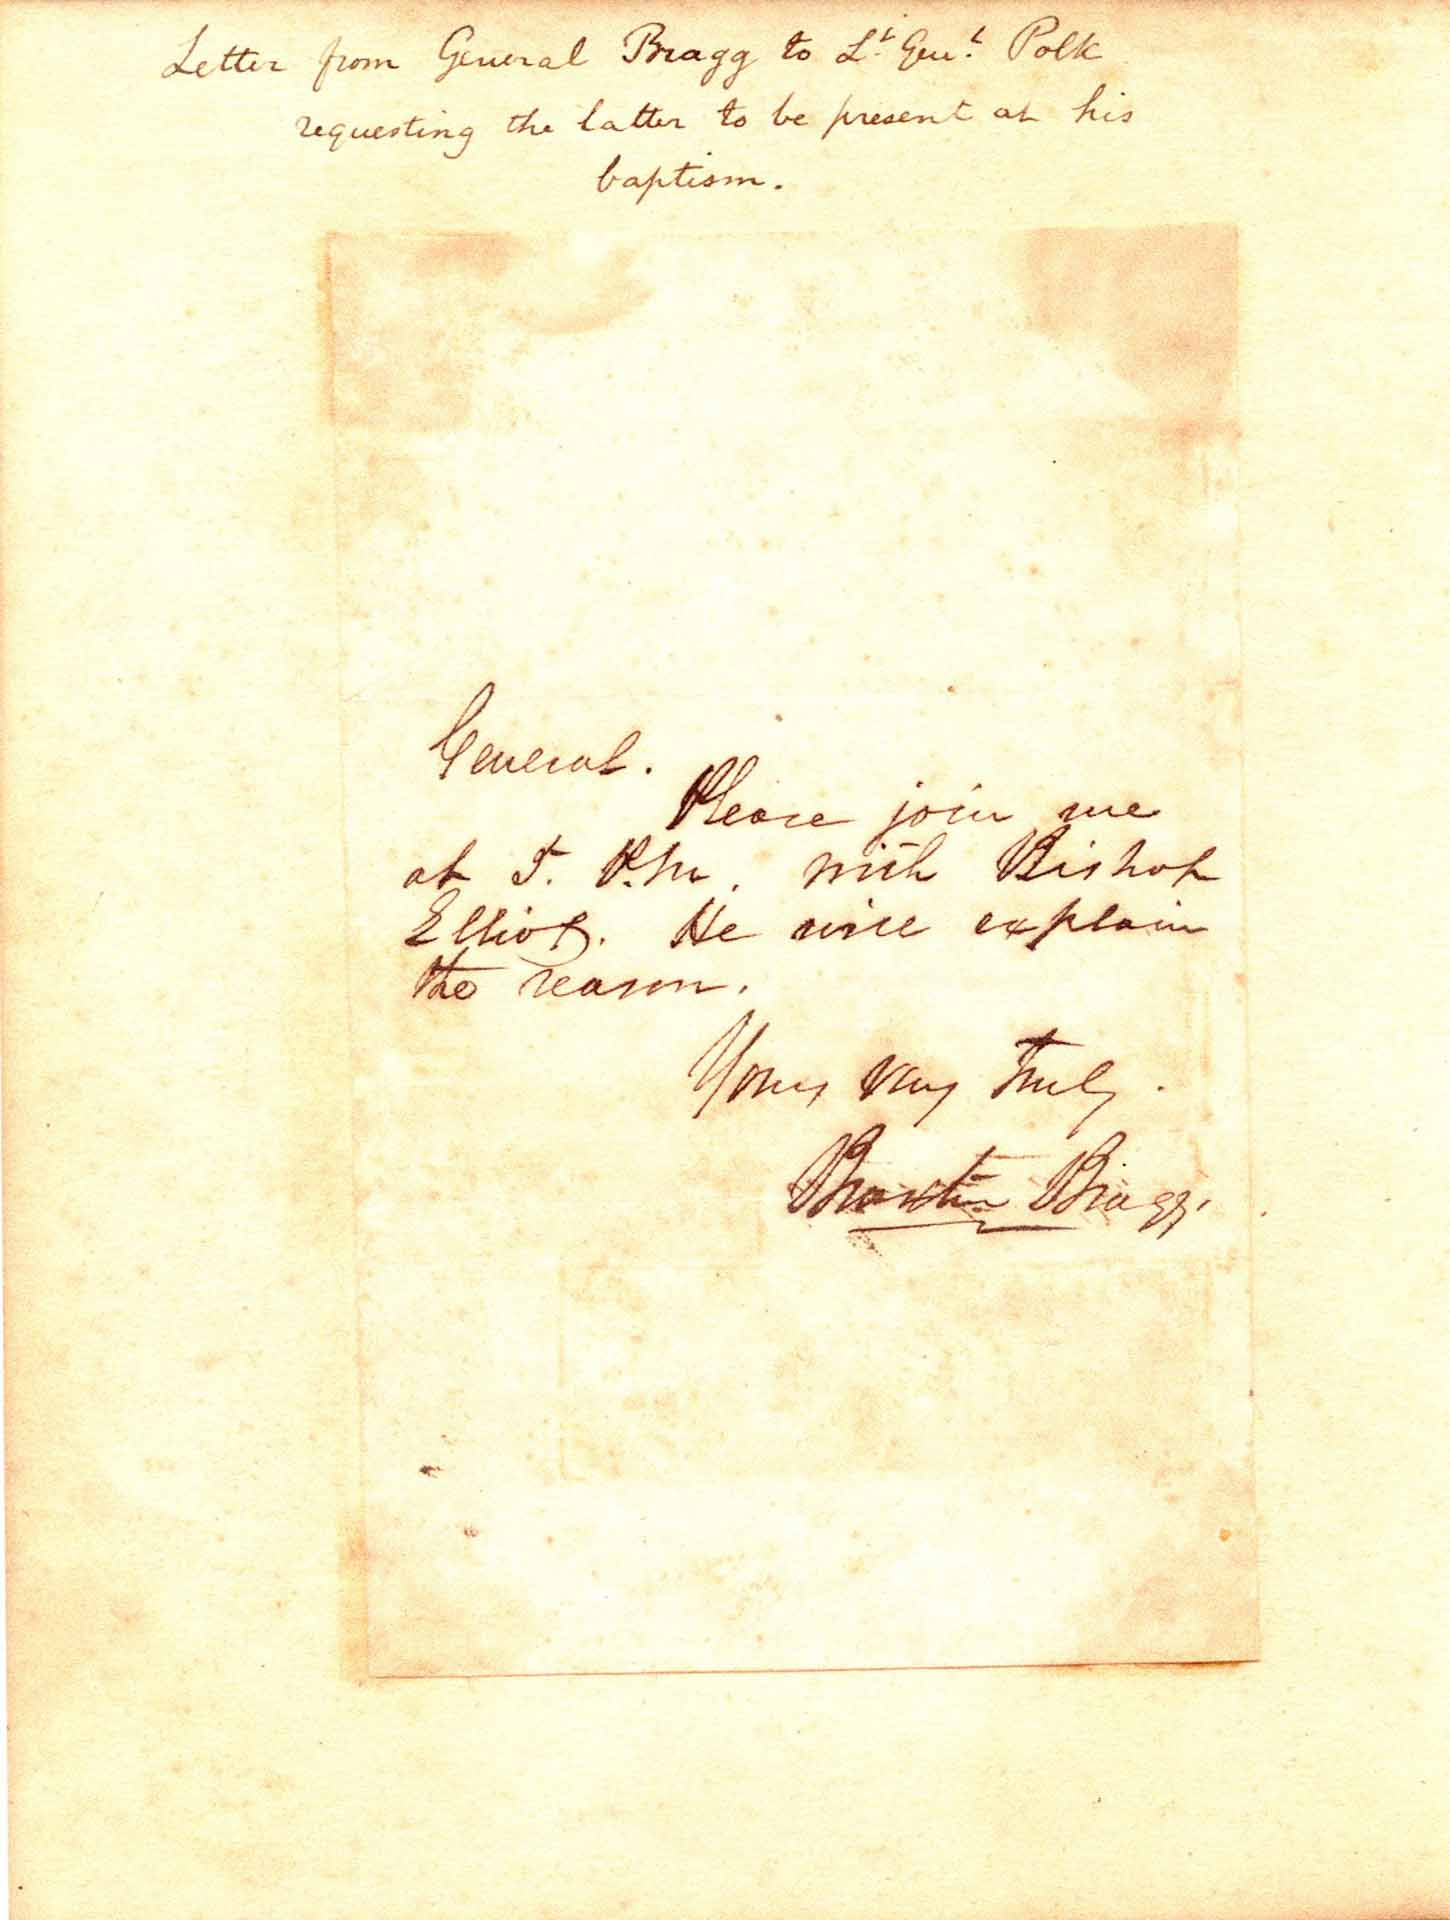 Letter from General Bragg to Lt. Genl. Polk
requesting the latter to be present at his
baptism.
General.
Please join me
at 5. P.M. with Bishop
Elliot. He will explain
the reason.
Yours very truly.
Braxton Bragg.